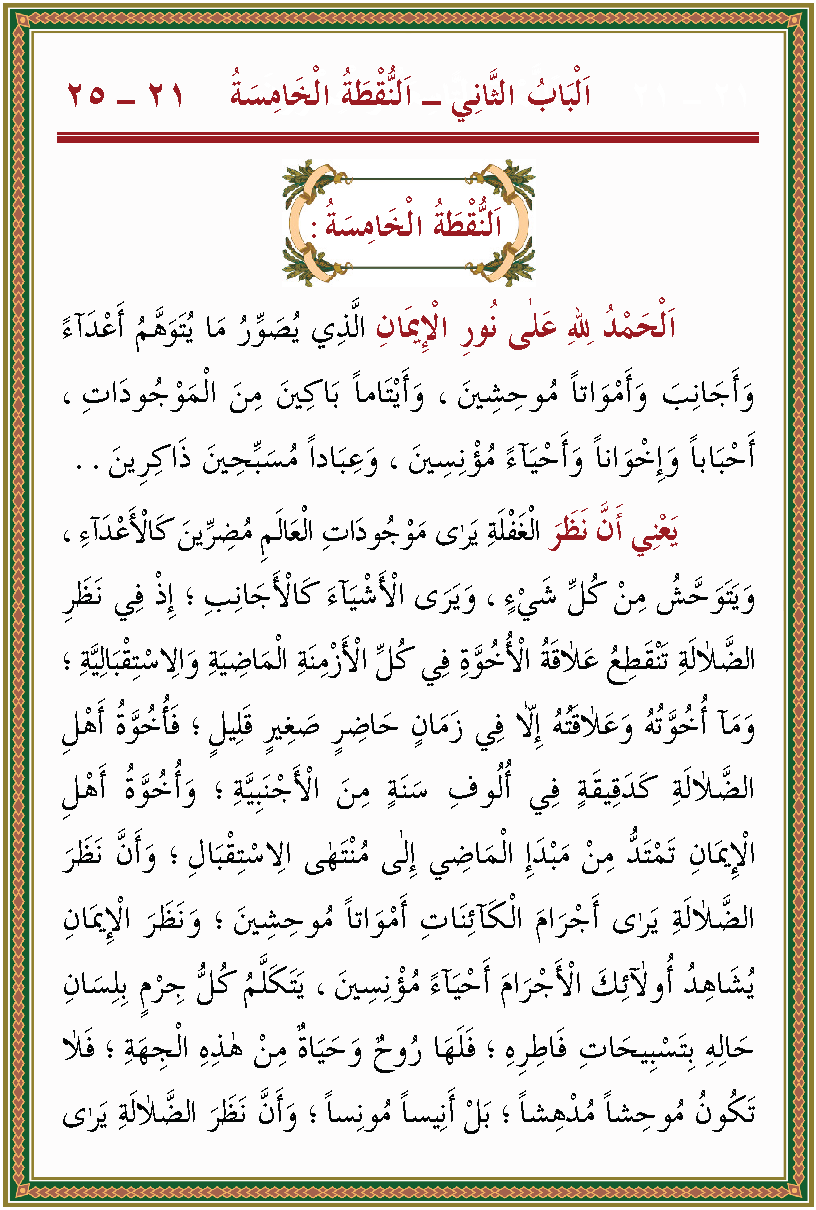 اَلْبَابُ الثَّانِي – اَلنُّقْطَةُ الْخَامِسَةُ ٢١ – ٢٥
اَلنُّقْطَةُ الْخَامِسَةُ :
اَلْحَمْدُ لِلّٰهِ عَلٰى نُورِ الْاِيمَانِ الَّذِي يُصَوِّرُ مَا يُتَوَهَّمُ أَعْدَآءً
وَأَجَانِبَ وَأَمْوَاتاً مُوحِشِينَ ، وَأَيْتَاماً بَاكِينَ مِنَ الْمَوْجُودَاتِ ،
أَحْبَاباً وَإِخْوَاناً وَأَحْيَآءً مُؤْنِسِينَ ، وَعِبَاداً مُسَبِّحِينَ ذَاكِرِينَ . .
يَعْنِي أَنَّ نَظَرَ الْغَفْلَةِ يَرٰى مَوْجُودَاتِ الْعَالَمِ مُضِرِّينَ كَالْأَعْدَآءِ ،
وَيَتَوَحَّشُ مِنْ كُلِّ شَيْءٍ ، وَيَرَى الْأَشْيَآءَ كَالْأَجَانِبِ ؛ إِذْ فِي نَظَرِ
الضَّلَالَةِ تَنْقَطِعُ عَلَاقَةُ الْأُخُوَّةِ فِي كُلِّ الْأَزْمِنَةِ الْمَاضِيَةِ وَالِاسْتِقْبَالِيَّةِ ؛
وَمَآ أُخُوَّتُهُ وَعَلَاقَتُهُ إِلَّا فِي زَمَانٍ حَاضِرٍ صَغِيرٍ قَلِيلٍ ؛ فَأُخُوَّةُ أَهْلِ
الضَّلَالَةِ كَدَقِيقَةٍ فِي أُلُوفِ سَنَةٍ مِنَ الْأَجْنَبِيَّةِ ؛ وَأُخُوَّةُ أَهْلِ
الْإِيمَانِ تَمْتَدُّ مِنْ مَبْدَإِ الْمَاضِي إِلٰى مُنْتَهَى الِاسْتِقْبَالِ ؛ وَأَنَّ نَظَرَ
الضَّلَالَةِ يَرٰى أَجْرَامَ الْكَآئِنَاتِ أَمْوَاتاً مُوحِشِينَ ؛ وَنَظَرَ الْإِيمَانِ
يُشَاهِدُ أُولٰٓئِكَ الْأَجْرَامَ أَحْيَآءً مُؤْنِسِينَ ، يَتَكَلَّمُ كُلُّ جِرْمٍ بِلِسَانِ
حَالِهِ بِتَسْبِيحَاتِ فَاطِرِهِ ؛ فَلَهَا رُوحٌ وَحَيَاةٌ مِنْ هٰذِهِ الْجِهَةِ ؛ فَلَا
تَكُونُ مُوحِشاً مُدْهِشاً ؛ بَلْ أَنِيساً مُونِساً ؛ وَأَنَّ نَظَرَ الضَّلَالَةِ يَرٰى